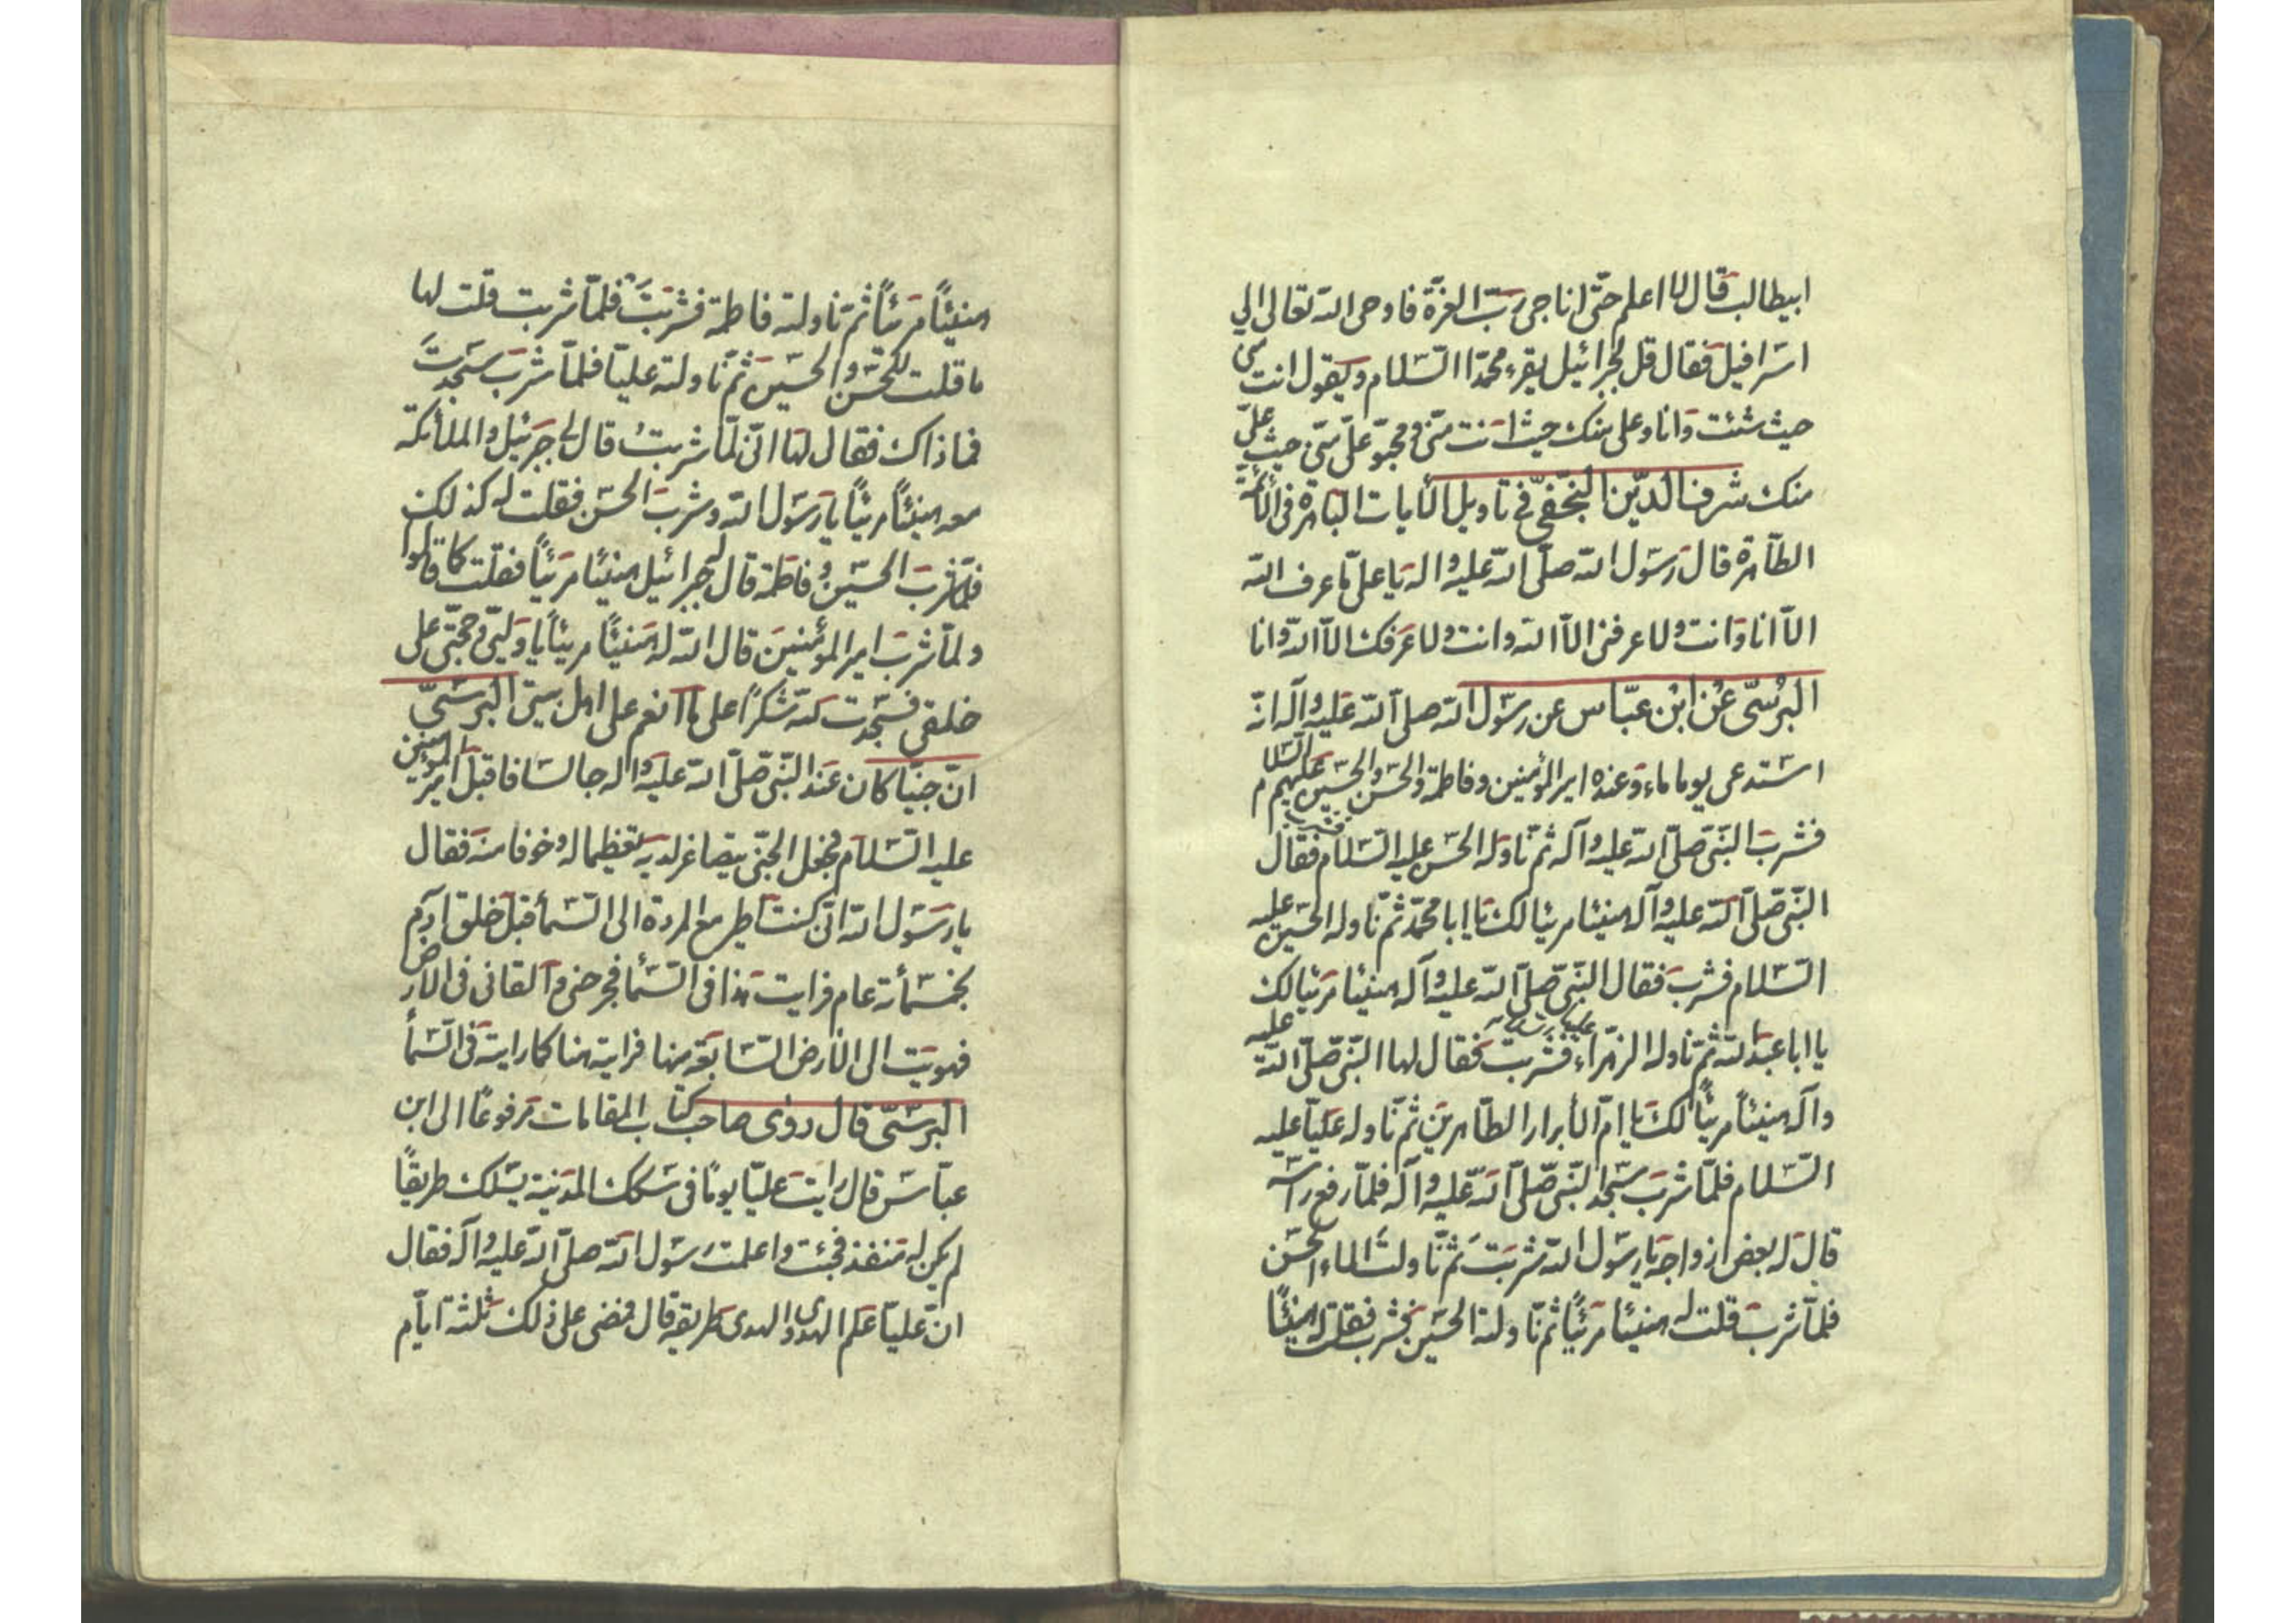 ابيطالب قال لا اعلم حتّى اناجى ربّ العزة فاوحى الله تعالى الى
اسرافيل فقال قل لجبرائيل يقرء محمّدا السّلام ويقول انت منى
حيث شئت وانا وعلى منك حيث انت منّى ومحبّو علىّ منّى حيث علىّ
منك شرف الدّين النّجفىّ فى تاويل الأيات الباهرة فى الأئمّة
الطّاهرة قال رسول الله صلّى الله عليه واله يا علىّ ما عرف الله
الّا انا وانت ولا عرفنى الّا الله وانت ولا عرفك الّا الله وانا
البرسىّ عن ابن عبّاس عن رسول الله صلى الله عليه وآله انّه
استدعى يوما ماء وعنده امير المؤمنين وفاطمة والحسن والحسين عليهم السّلام
فشرب النّبى صلّى الله عليه وآله ثم ناوله الحسن عليه السّلام فشرب فقال
النّبى صلّى الله عليه وآله هنيئا مريئا لك يا ابا محمّد ثم ناوله الحسين عليه
السّلام فشرب فقال النّبى صلّى الله عليه وآله هنيئا مريئا لك
يا ابا عبد الله ثم ناوله الزهراء فشربت فقال لها النّبى صلّى الله عليه
وآله هنيئاً مريئاً لك يا امّ الأبرار الطّاهرين ثم ناوله عليّا عليه
السّلام فلمّا شرب سجد النّبى صلّى الله عليه وآله فلمّا رفع راسه
قال له بعض ازواجه يا رسول الله شربت ثم ناولت الماء الحسن
فلمّا شرب قلت له هنيئا مريئاً ثم ناولته الحسين فشرب فقلت له هنيئاً
هنيئاً مريئاً ثم ناولته فاطمة فشربت فلمّا شربت قلت لها
ما قلت للحسن والحسين ثم ناولته عليّا فلمّا شرب سجدت
فما ذاك فقال لها انّى لمّا شربت قال لى جبرئيل والملائكة
معه هنيئاً مريئاً يا رسول الله وشرب الحسن فقلت له كذلك
فلمّا شرب الحسين وفاطمة قال جبرائيل هنيئا مريئاً فقلت كما قالوا
ولمّا شرب امير المؤمنين قال الله له هنيئاً مريئاً يا وليّى وحجّتى على
خلقى فسجدت لله شكراً على ما انعم على اهل بيتى البرسىّ
انّ جنّيا كان عند النّبى صلّى الله عليه واله جالسا فاقبل امير المؤمنين
عليه السّلام فجعل الجنّى يتصاغر لديه تعظيما له وخوفا منه فقال
يا رسول الله انّى كنت اطير مع المردة الى السّمأ قبل خلق ادم
بخمسمأئة عام فرايت هذا فى السّمأ فجرحنى وألقانى فى الأرض
فهويت الى الأرض السّابعة منها فرايته هنا كما رايته فى السّمأ
البرسّىّ قال روى صاحب كتاب المقامات مرفوعاً الى ابن
عبّاس قال رايت عليّا يوماً فى سكك المدنية يسلك طريقاً
لم يكن له منفذ فجئت واعلمت رسول الله صلّى الله عليه وآله فقال
انّ عليّا علم الهدى والهدى طريقه قال فمضى على ذلك ثلثة ايّام